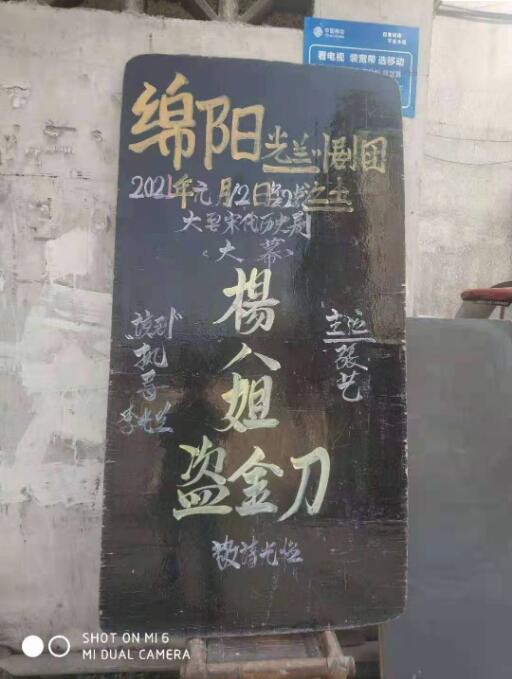 中国移动
看电视 装宽带 选移动
绵阳光兰川剧团
2021年元月12日
大型宋代历史剧
<大幕>
楊
八
姐
盗金刀
主演
张艺
李光兰
敬请光临
SHOT ON MI 6
MI DUAL CAMERA